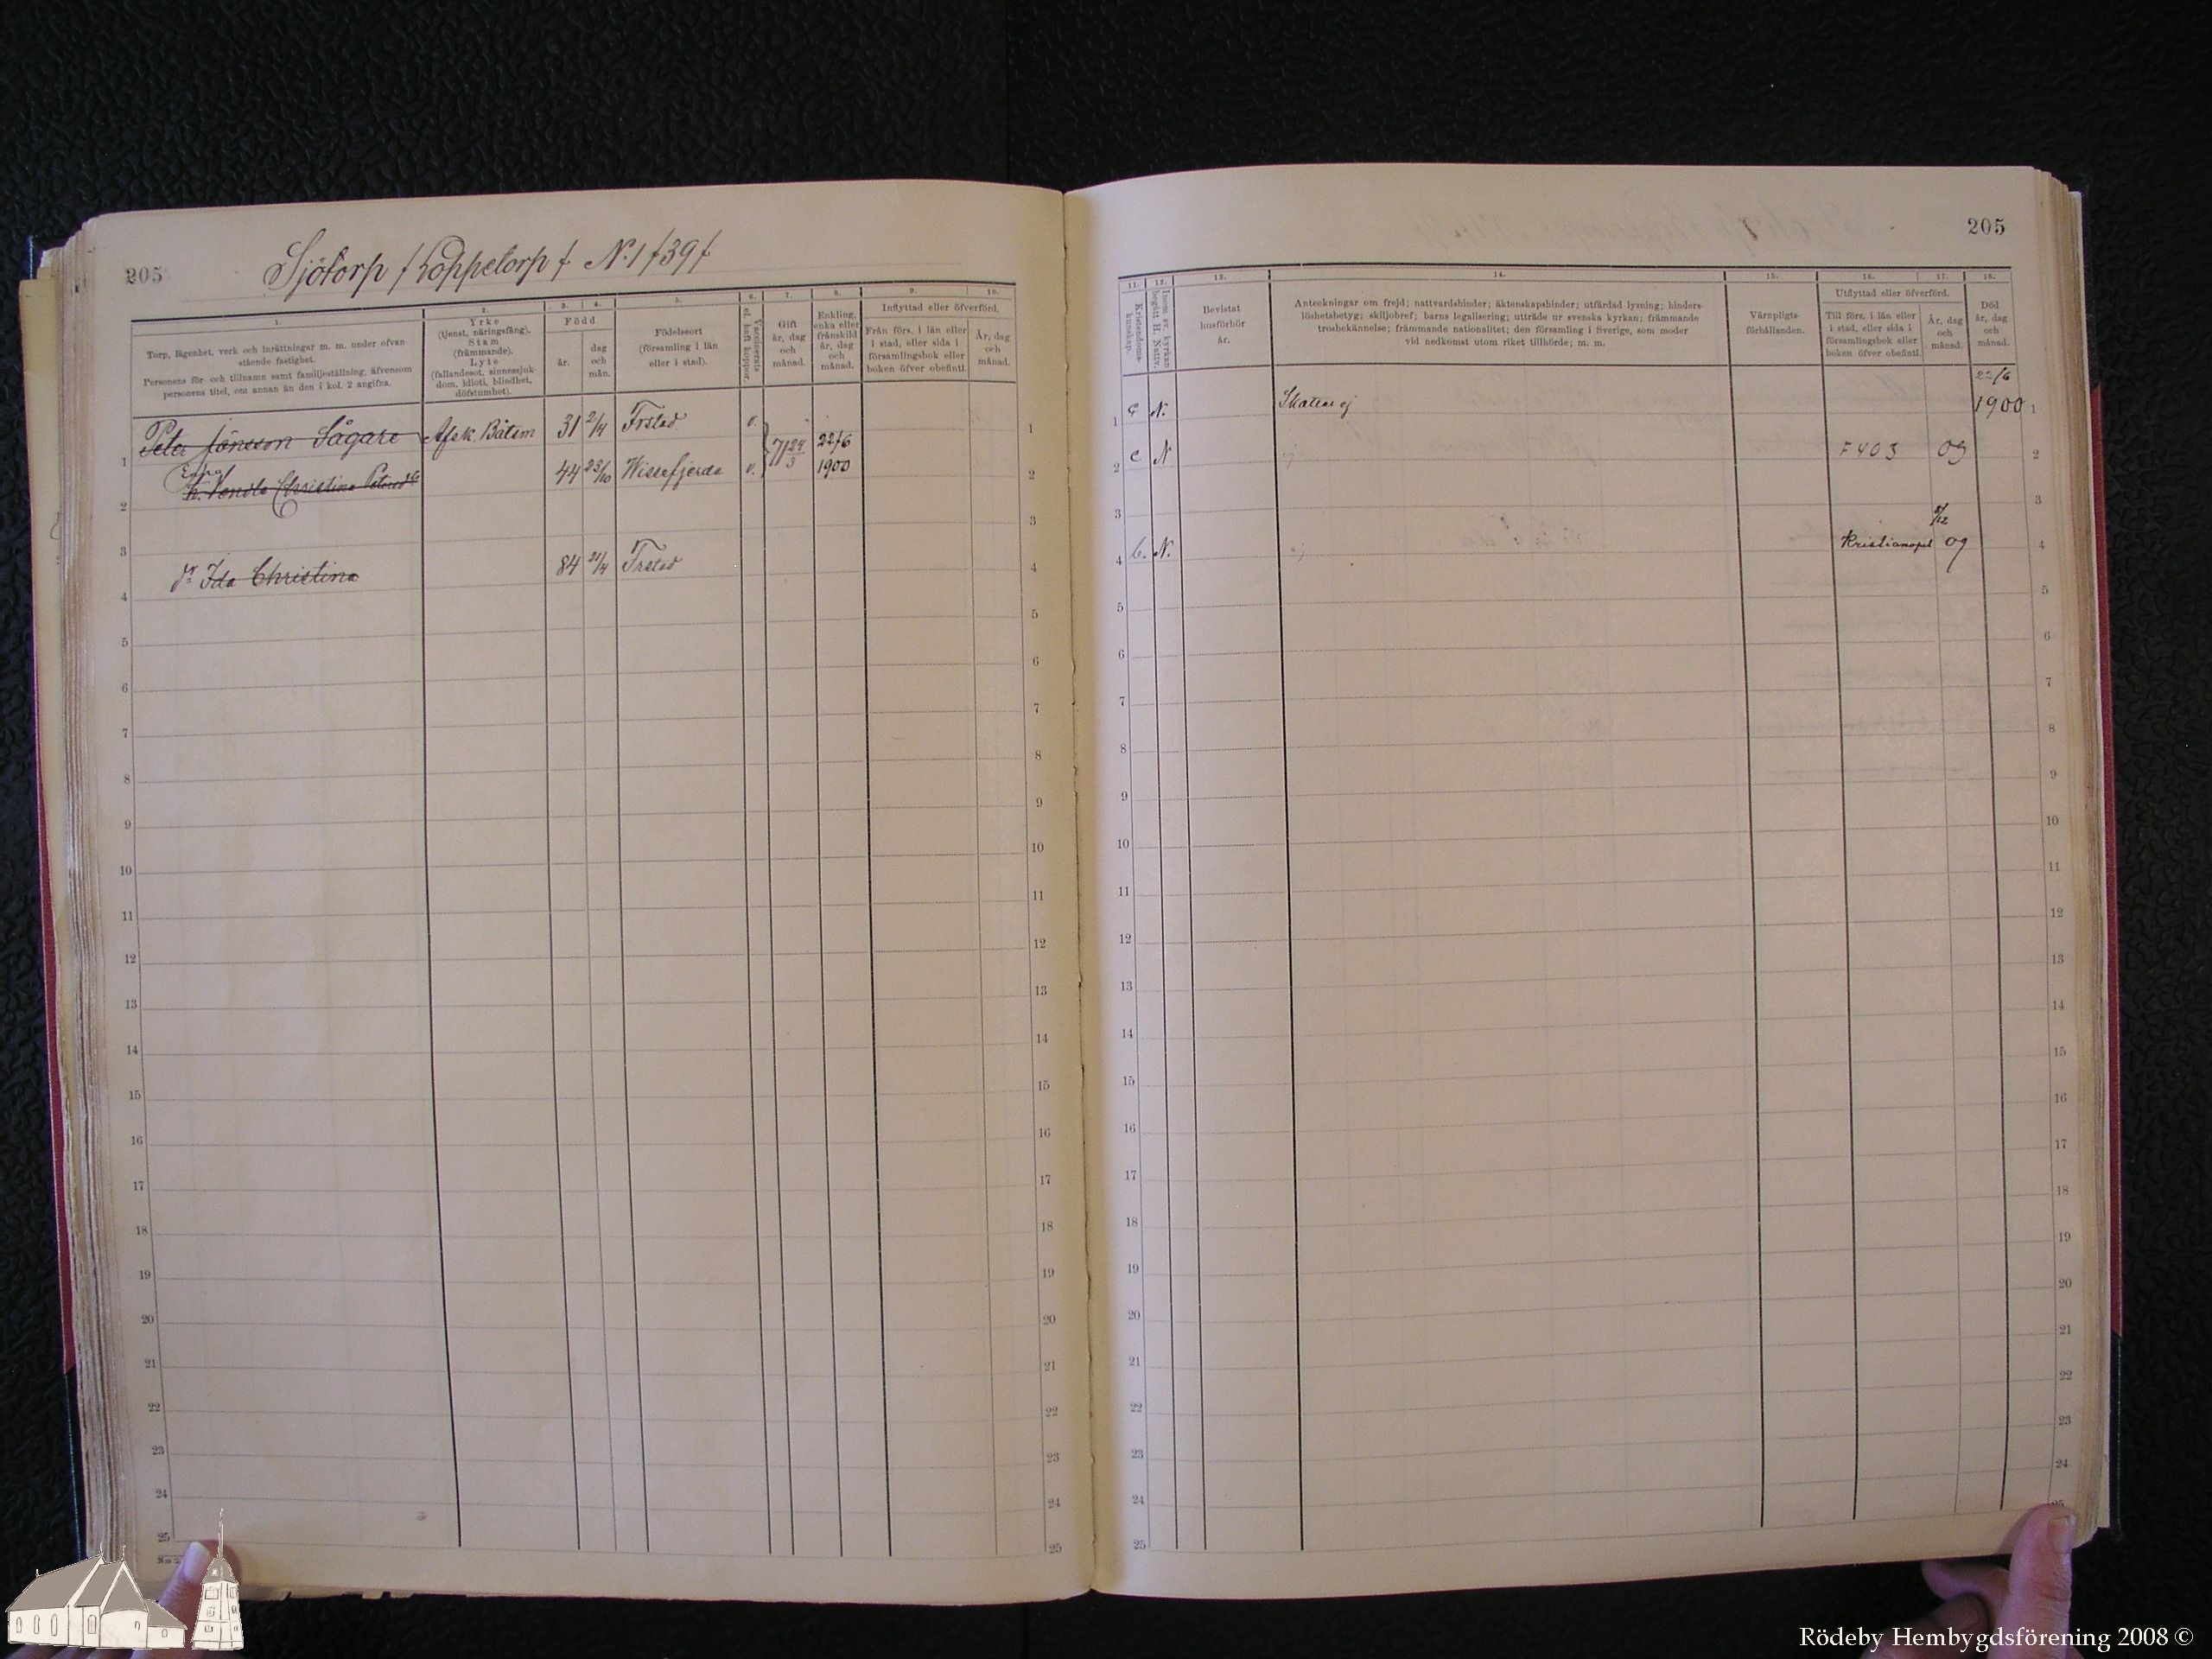 205
Sjötorp /Koppetorp/ N:1 /39/
1.
Torp, lägenhet, verk och inrättningar m. m. under ofvan
stående fastighet.
Personens för- och tillnamn samt familjeställning, äfvensom
personens titel, om annan än den i kol. 2 angifna.
2.
Yrke
(tjenst, näringsfång).
Stam
(främmande).
Lyte
(fallandesot, sinnessjuk-
dom, idioti, blindhet,
döfstumhet).
3.
4.
Född
år.
dag
och
mån.
5.
Födelseort
(församling i län
eller i stad).
6.
Vaccinerats
el. haft koppor.
7.
Gift
år, dag
och
månad.
8.
Enkling,
enka eller
frånskild
år, dag
och
månad.
9.
10.
Inflyttad eller öfverförd.
Från förs. i län eller
i stad, eller sida i
församlingsbok eller
boken öfver obefintl.
År, dag
och
månad.
1 Peter Jönsson Sågare Afsk. Båtsm 31 2/4 Frstad v. 71 24/3 22/6 1
Enka
2 h. Vendla Christina Petersd:r 44 23/10 Wissefjerda v. 1900 2
3 3
4 dr Ida Christina 84 21/4 Frstad 4
5 5
6 6
7 7
8 8
9 9
10 10
11 11
12 12
13 13
14 14
15 15
16 16
17 17
18 18
19 19
20 20
21 21
22 22
23 23
24 24
25 25
205
11.
Kristendoms-
kunskap.
12.
Inom sv. kyrkan
begått H. Nattv.
13.
Bevistat
husförhör
år.
14.
Anteckningar om frejd; nattvardshinder; äktenskapshinder; utfärdad lysning; hinders-
löshetsbetyg; skiljobref; barns legalisering; utträde ur svenska kyrkan; främmande
trosbekännelse; främmande nationalitet; den församling i Sverige, som moder
vid nedkomst utom riket tillhörde; m. m.
15.
Värnpligts-
förhållanden.
16.
17.
Utflyttad eller öfverförd.
Till förs. i län eller
i stad, eller sida i
församlingsbok eller
boken öfver obefintl.
År, dag
och
månad.
18.
Död
år, dag
och
månad.
22/6
1 G N. Skattar ej 1900 1
2 C N F 403 09 2
3 3
8/12
4 C. N. Kristianopel 09 4
5 5
6 6
7 7
8 8
9 9
10 10
11 11
12 12
13 13
14 14
15 15
16 16
17 17
18 18
19 19
20 20
21 21
22 22
23 23
24 24
25 25
Rödeby Hembygdsförening 2008 ©